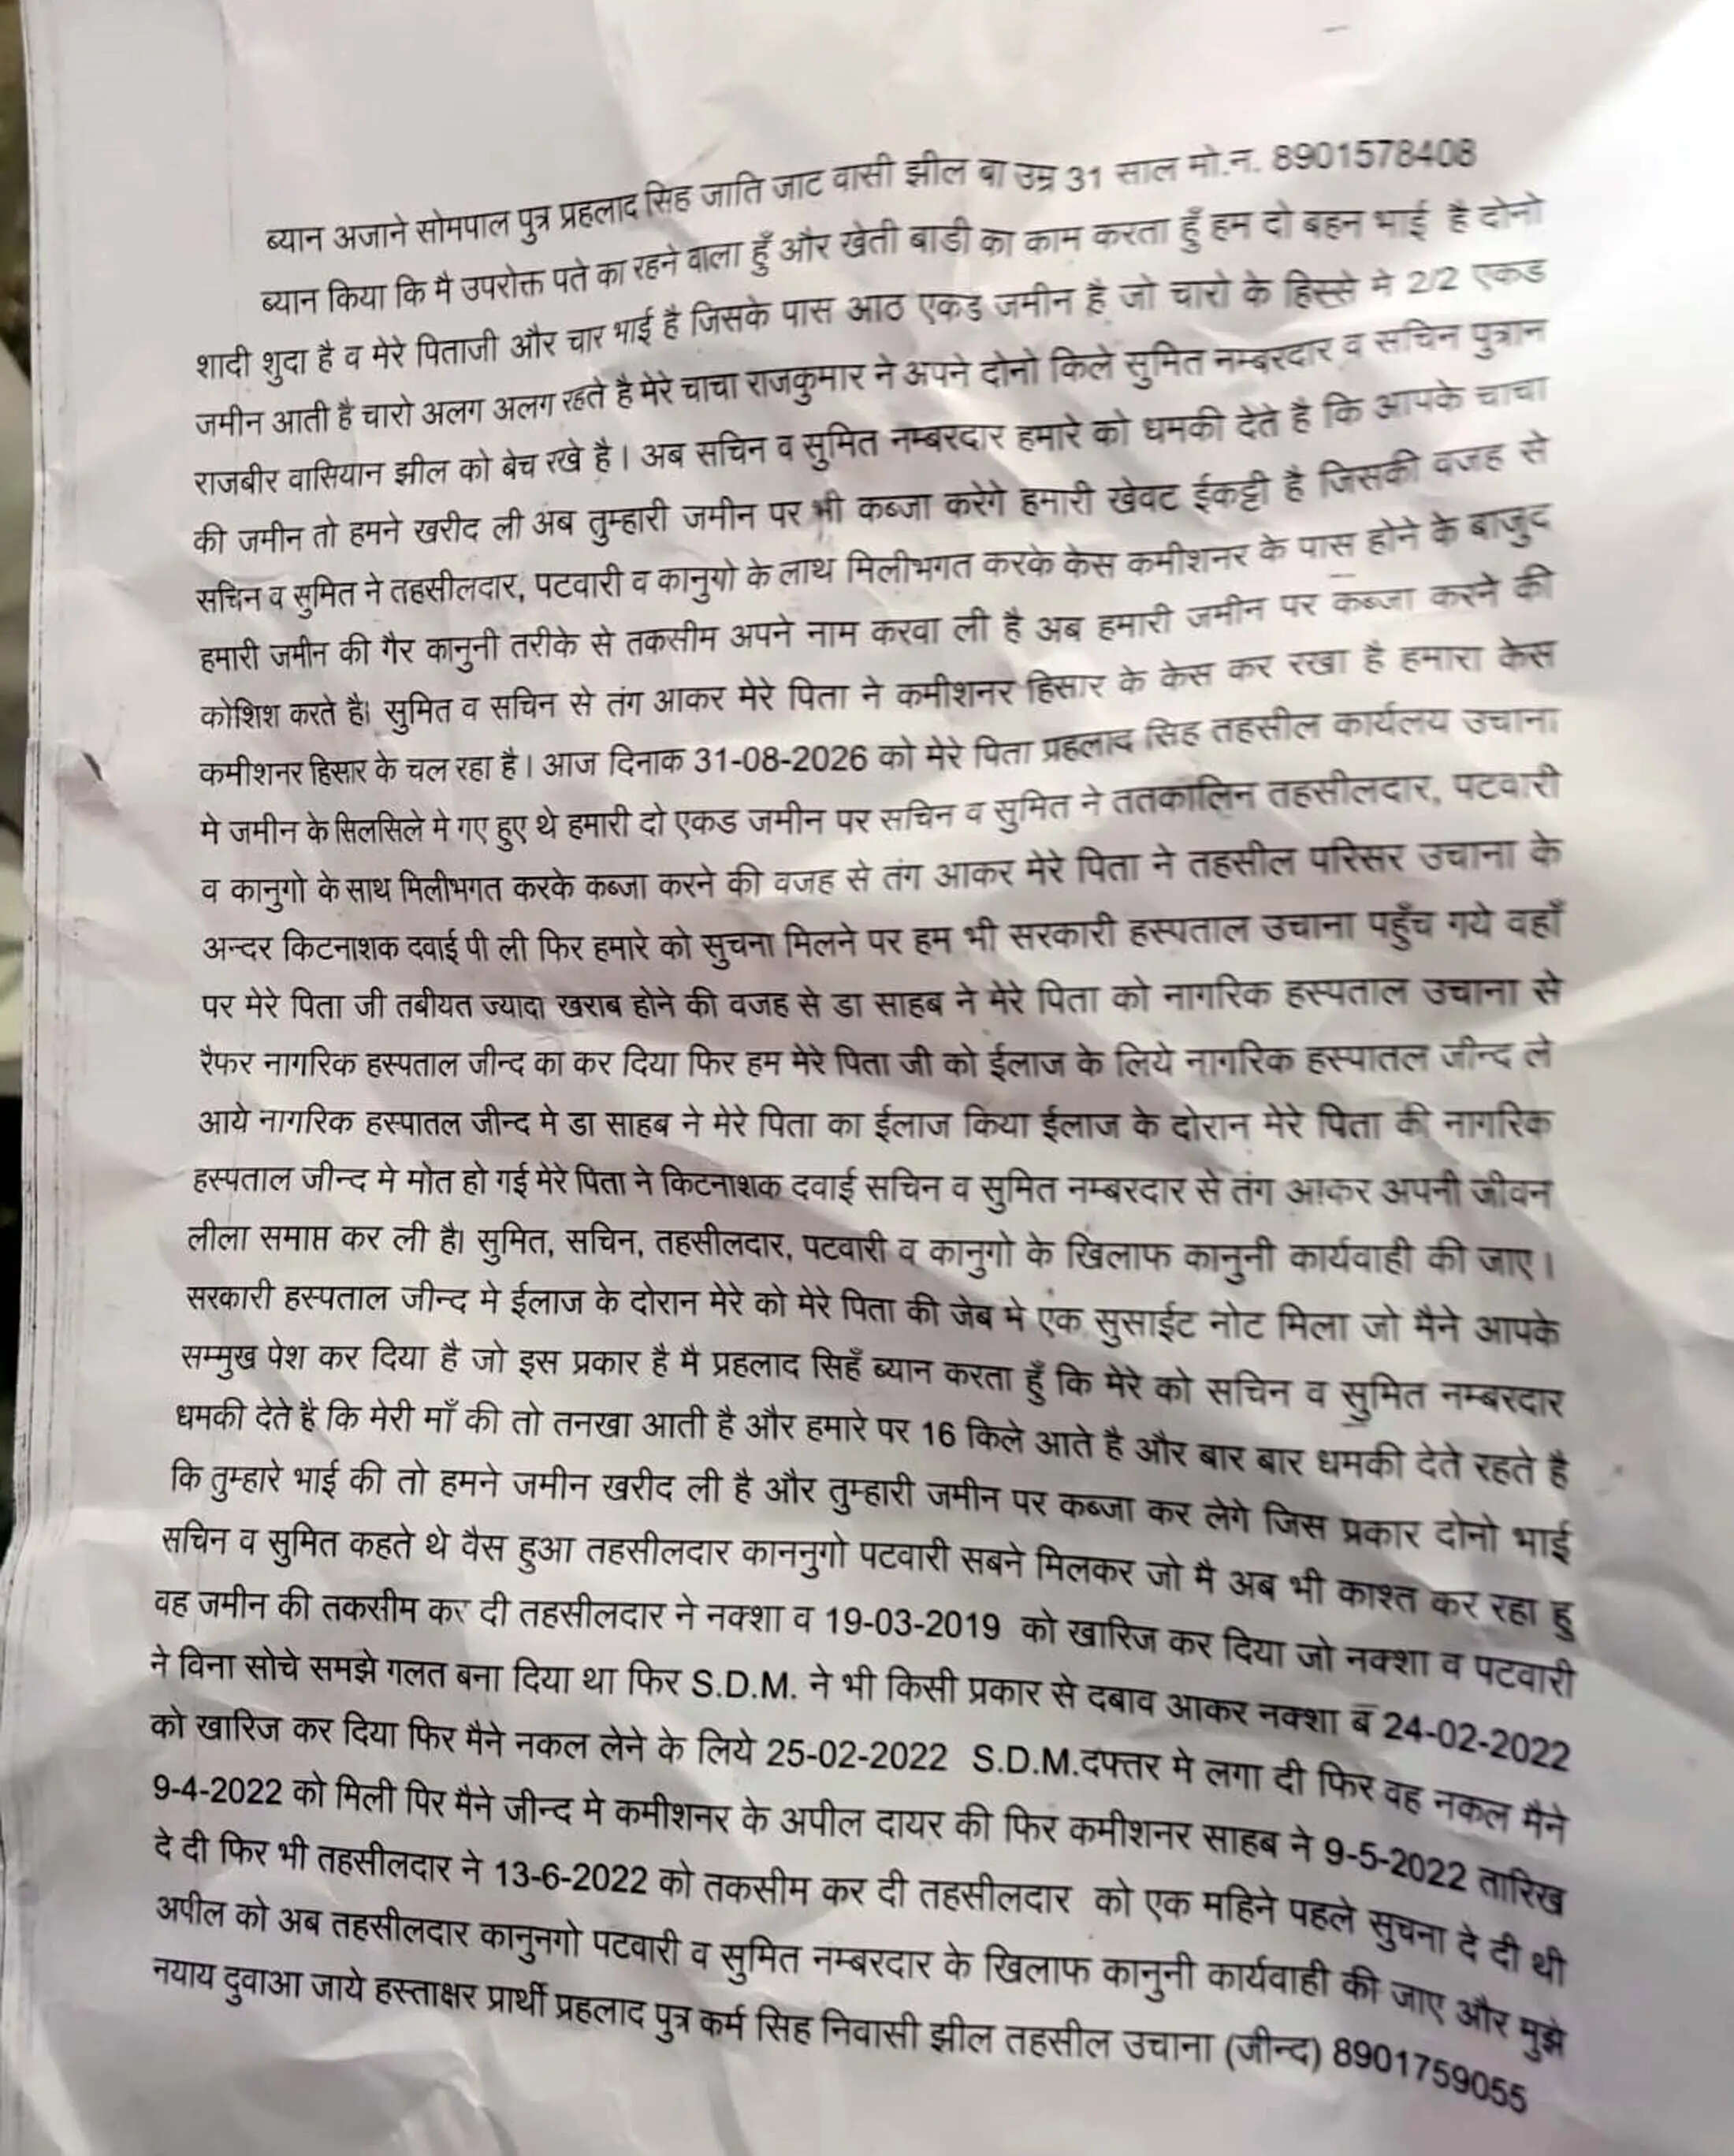 ब्यान अजाने सोमपाल पुत्र प्रहलाद सिह जाति जाट वासी झील बा उम्र 31 साल मो.न. 8901578408
ब्यान किया कि मै उपरोक्त पते का रहने वाला हुँ और खेती बाडी का काम करता हुँ हम दो बहन भाई है दोनो
शादी शुदा है व मेरे पिताजी और चार भाई है जिसके पास आठ एकड जमीन है जो चारो के हिस्से मे 2/2 एकड
जमीन आती है चारो अलग अलग रहते है मेरे चाचा राजकुमार ने अपने दोनो किले सुमित नम्बरदार व सचिन पुत्रान
राजबीर वासियान झील को बेच रखे है। अब सचिन व सुमित नम्बरदार हमारे को धमकी देते है कि आपके चाचा
की जमीन तो हमने खरीद ली अब तुम्हारी जमीन पर भी कब्जा करेगे हमारी खेवट ईकट्टी है जिसकी वजह से
सचिन व सुमित ने तहसीलदार, पटवारी व कानुगो के लाथ मिलीभगत करके केस कमीशनर के पास होने के बाजुद
हमारी जमीन की गैर कानुनी तरीके से तकसीम अपने नाम करवा ली है अब हमारी जमीन पर कब्जा करने की
कोशिश करते है। सुमित व सचिन से तंग आकर मेरे पिता ने कमीशनर हिसार के केस कर रखा है हमारा केस
कमीशनर हिसार के चल रहा है। आज दिनाक 31-08-2026 को मेरे पिता प्रहलाद सिह तहसील कार्यलय उचाना
मे जमीन के सिलसिले मे गए हुए थे हमारी दो एकड जमीन पर सचिन व सुमित ने ततकालिन तहसीलदार, पटवारी
व कानुगो के साथ मिलीभगत करके कब्जा करने की वजह से तंग आकर मेरे पिता ने तहसील परिसर उचाना के
अन्दर किटनाशक दवाई पी ली फिर हमारे को सुचना मिलने पर हम भी सरकारी हस्पताल उचाना पहुँच गये वहाँ
पर मेरे पिता जी तबीयत ज्यादा खराब होने की वजह से डा साहब ने मेरे पिता को नागरिक हस्पताल उचाना से
रैफर नागरिक हस्पताल जीन्द का कर दिया फिर हम मेरे पिता जी को ईलाज के लिये नागरिक हस्पातल जीन्द ले
आये नागरिक हस्पातल जीन्द मे डा साहब ने मेरे पिता का ईलाज किया ईलाज के दोरान मेरे पिता की नागरिक
हस्पताल जीन्द मे मोत हो गई मेरे पिता ने किटनाशक दवाई सचिन व सुमित नम्बरदार से तंग आकर अपनी जीवन
लीला समाप्त कर ली है। सुमित, सचिन, तहसीलदार, पटवारी व कानुगो के खिलाफ कानुनी कार्यवाही की जाए।
सरकारी हस्पताल जीन्द मे ईलाज के दोरान मेरे को मेरे पिता की जेब मे एक सुसाईट नोट मिला जो मैने आपके
सम्मुख पेश कर दिया है जो इस प्रकार है मै प्रहलाद सिहँ ब्यान करता हुँ कि मेरे को सचिन व सुमित नम्बरदार
धमकी देते है कि मेरी माँ की तो तनखा आती है और हमारे पर 16 किले आते है और बार बार धमकी देते रहते है
कि तुम्हारे भाई की तो हमने जमीन खरीद ली है और तुम्हारी जमीन पर कब्जा कर लेगे जिस प्रकार दोनो भाई
सचिन व सुमित कहते थे वैस हुआ तहसीलदार काननुगो पटवारी सबने मिलकर जो मै अब भी काश्त कर रहा हु
वह जमीन की तकसीम कर दी तहसीलदार ने नक्शा व 19-03-2019 को खारिज कर दिया जो नक्शा व पटवारी
ने विना सोचे समझे गलत बना दिया था फिर S.D.M. ने भी किसी प्रकार से दबाव आकर नक्शा ब 24-02-2022
को खारिज कर दिया फिर मैने नकल लेने के लिये 25-02-2022 S.D.M.दफ्तर मे लगा दी फिर वह नकल मैने
9-4-2022 को मिली पिर मैने जीन्द मे कमीशनर के अपील दायर की फिर कमीशनर साहब ने 9-5-2022 तारिख
दे दी फिर भी तहसीलदार ने 13-6-2022 को तकसीम कर दी तहसीलदार को एक महिने पहले सुचना दे दी थी
अपील को अब तहसीलदार कानुनगो पटवारी व सुमित नम्बरदार के खिलाफ कानुनी कार्यवाही की जाए और मुझे
नयाय दुवाआ जाये हस्ताक्षर प्रार्थी प्रहलाद पुत्र कर्म सिह निवासी झील तहसील उचाना (जीन्द) 8901759055